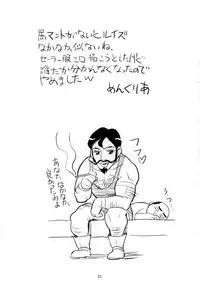 黒マントがないとルイズ
なかなか似ないね。
セーラー服エロ描こうとしたけど
誰だか分かんなくなったので
やめましたw
めんぐりあ
あなた、なかなか
良かったわよ